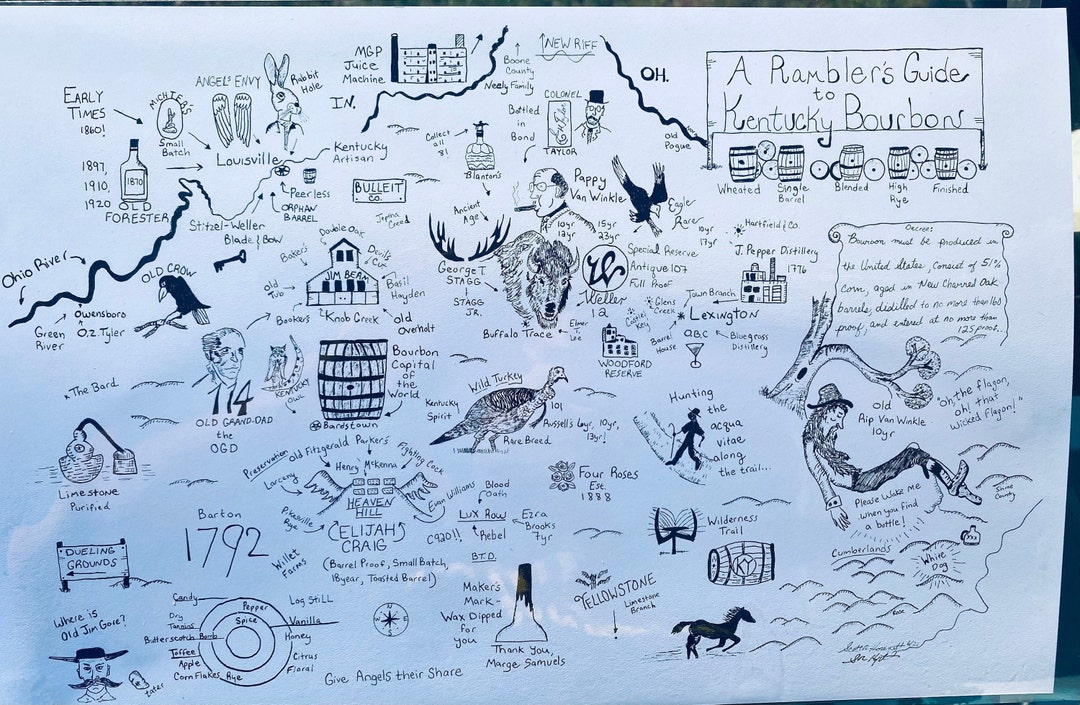 A Rambler's Guide
to
Kentucky Bourbons
Wheated
Single
Barrel
Blended
High
Rye
Finished
MGP
Juice
Machine
IN.
Boone
County
Neely Family
NEW RIFF
OH.
Old
Pogue
EARLY
TIMES
1860!
MICHTER'S
Small
Batch
ANGEL'S ENVY
Rabbit
Hole
Louisville
Kentucky
Artisan
Peerless
ORPHAN
BARREL
1897,
1910,
1920
1870
OLD
FORESTER
Stitzel-Weller
Blade & Bow
BULLEIT
CO.
Jeptha
Creed
Collect
all
8!
Blanton's
Bottled
in
Bond
COLONEL
TAYLOR
Pappy
Van Winkle
10yr
12yr
15yr
23yr
Eagle
Rare
10yr
17yr
Ancient
Age
GEORGE T.
STAGG
STAGG
JR.
Buffalo Trace
Elmer
Lee
W
Weller
12
Special Reserve
Antique 107
Full Proof
Hartfield & Co.
J. Pepper Distillery
1776
Town Branch
Glens
Creek
Castle
Key
LEXINGTON
Barrel
House
ABC
Bluegrass
Distillery
WOODFORD
RESERVE
Decree:
Bourbon must be produced in
the United States, Consist of 51%
Corn, aged in New Charred Oak
barrels, distilled to no more than 160
proof, and entered at no more than
125 proof.
Ohio River
Green
River
Owensboro
O.Z. Tyler
OLD CROW
Double Oak
Baker's
Devil's
Cut
JIM BEAM
Old
Tub
Basil
Hayden
Booker's
Knob Creek
Old
Overholt
The Bard
114
OLD GRAND-DAD
the
OGD
KENTUCKY
OWL
Bourbon
Capital
of
the
World
Bardstown
Wild Turkey
Kentucky
Spirit
101
Russell's 6yr, 10yr,
13yr!
Rare Breed
Hunting
the
acqua
vitae
along
the trail...
Old
Rip Van Winkle
10yr
"Oh, the flagon,
oh! that
wicked flagon!"
Please Wake Me
when you find
a bottle!
Shine
Limestone
Purified
Preservation
Old Fitzgerald
Parker's
Fighting Cock
Larceny
Henry McKenna
HEAVEN
HILL
Evan Williams
Pikesville
Rye
ELIJAH
CRAIG
(Barrel Proof, Small Batch,
18year, Toasted Barrel)
C920!!
Blood
Oath
LUX ROW
Ezra
Brooks
7yr
Rebel
B.T.D.
Four Roses
Est.
1888
Wilderness
Trail
KY
Cumberlands
White
Dog
Barton
1792
Willet
Farms
DUELING
GROUNDS
Where is
Old Jim Gore?
tater
Candy
Dry
Tannins
Butterscotch Bomb
Toffee
Apple
Corn Flakes
Rye
Pepper
Spice
Log Still
Vanilla
Honey
Citrus
Floral
N
E
S
W
Give Angels their Share
Maker's
Mark-
Wax Dipped
for
you
Thank You,
Marge Samuels
YELLOWSTONE
Limestone
Branch